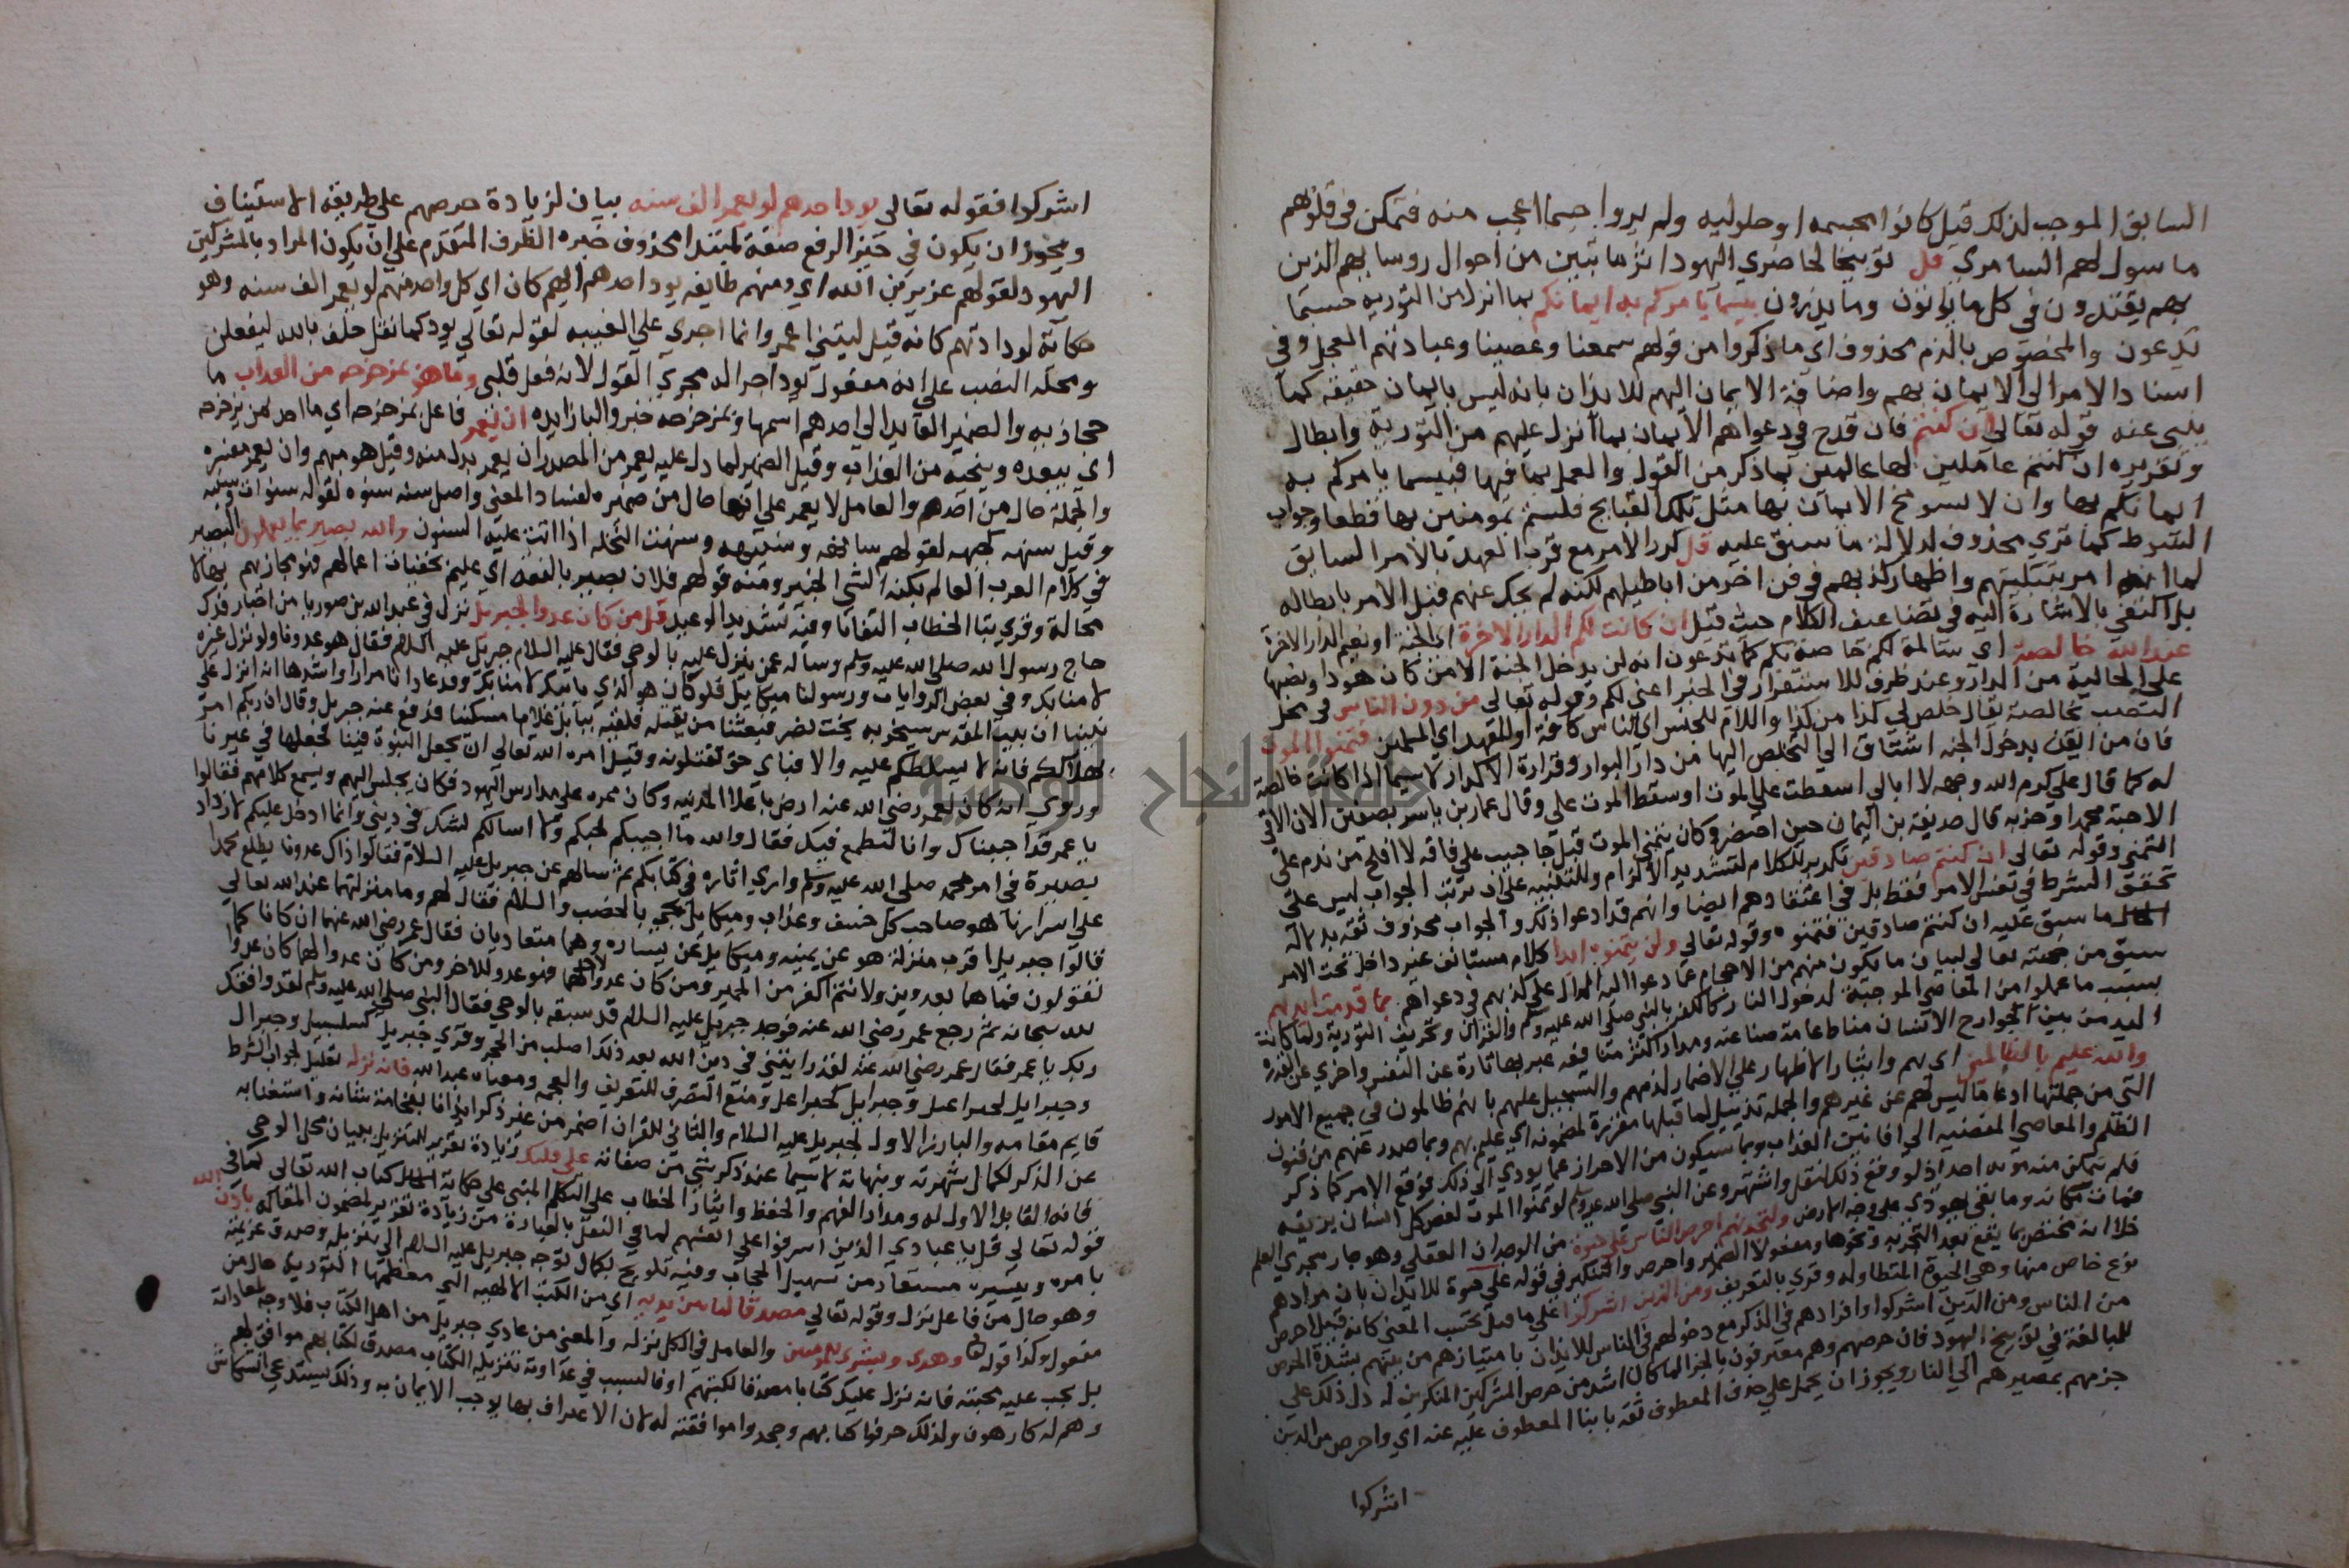 السابق الموجب لذلك قيل كانوا مجسمه او حلوليه ولم يروا جسما اعجب منه فتمكن في قلوبهم
ما سول لهم السامري قل توبيخا لحاضري اليهود اثر ما تبين من احوال روسايهم الذين
بهم يقتدون في كل ما ياتون وما يذرون بيسما يامركم به ايمانكم بما انزل من التوريه حسبما
تدعون والمخصوص بالذم محذوف اي ما ذكروا من قولهم سمعنا وعصينا وعبادتهم العجل وفي
اسناد الامر الي الايمان بهم واضافة الايمان اليهم للايذان بانه ليس بايمان حقيقه كما
ينبي عنه قوله تعالي ان كنتم فان قدح في دعواهم الايمان بما انزل عليهم من التوريه وابطال
وتقريره ان كنتم عاملين لها عالمين بما ذكر من القول والعمل بما فيها فبيسما يامركم به
ايمانكم بها وان لا يسوغ الايمان بها مثل تلك القبايح فلستم بمومنين بها قطعا وجواب
الشرط كما تري محذوف لدلالة ما سبق عليه قل كرر الامر مع قرب العهد بالامر السابق
لما انه امر بتبكيتهم واظهار كذبهم في فن اخر من اباطيلهم لكنه لم يحك عنهم قبل الامر بابطاله
بل اكتفي بالاشارة اليه في تضاعيف الكلام حيث قيل ان كانت لكم الدار الاخرة اي الجنة او نعيم الدار الاخرة
عند الله خالصة اي سالمة لكم خاصة بكم كما تدعون انه لن يدخل الجنة الا من كان هودا ونصبها
علي الحالية من الدار وعند ظرف للاستقرار في الخبر اعني لكم وقوله تعالي من دون الناس في محل
النصب بخالصة يقال خلص لي كذا من كذا واللام للجنس اي الناس كافة او للعهد اي المسلمين فتمنوا الموت
فان من ايقن بدخول الجنه اشتاق الي التخلص اليها من دار البوار وقرارة الاكدار لا سيما اذا كانت خالصة
له كما قال علي كرم الله وجهه لا ابالي اسقطت علي الموت او سقط الموت علي وقال عمار بن ياسر بصفين الان الاقي
الاحبة محمدا وحزبه قال حذيفة بن اليمان حين احتضر وكان يتمني الموت قبل جا حبيب علي فاقه لا افلح من ندم علي
التمني وقوله تعالي ان كنتم صادقين تكرير للكلام لتشديد الالزام وللتنبيه علي ان ترتب الجواب ليس علي
تحقق الشرط في نفس الامر فقط بل في اعتقادهم ايضا وانهم قد ادعوا ذلك والجواب محذوف ثقة بدلالة
ما سبق عليه ان كنتم صادقين فتمنوه وقوله تعالي ولن يتمنوه ابدا كلام مستانف غير داخل تحت الامر
سيق من جهته تعالي لبيان ما يكون منهم من الاحجام عما دعوا اليه الدال علي كذبهم في دعواهم بما قدمت ايديهم
بسبب ما عملوا من المعاصي الموجبة لدخول النار كالكفر بالنبي صلي الله عليه وسلم والقران وتحريف التورية ولما كانت
اليد من بين الجوارح الانسان مناط عامة صنايعه ومدار اكثر منافعه عبر بها تارة عن النفس واخري عن القدرة
والله عليم بالظالمين اي بهم وايثار الاظهار علي الاضمار لذمهم والتسجيل عليهم بانهم ظالمون في جميع الامور
التي من جملتها ادعا ما ليس لهم عن غيرهم والجملة تذييل لما قبلها مقررة لمضمونه اي عليم بهم وبما صدر عنهم من فنون
الظلم والمعاصي المفضيه الي افانين العذاب وبما سيكون من الاحراز عما يودي الي ذلك فوقع الامر كما ذكر
فلم يتمكن منه موته احد اذ لو وقع ذلك لنقل واشتهر وعن النبي صلي الله عليه وسلم لو تمنوا الموت لغص كل انسان بريقه
فمات مكانه وما بقي يهودي علي وجه الارض ولتجدنهم احرص الناس علي حيوة من الوجدان العقلي وهو جار مجري العلم
خلا انه مختص بما يقع بعد التجربه ونحوها ومفعولا الضمير واحرص والتنكير في قوله علي حيوة للايذان بان مرادهم
نوع خاص منها وهي الحيوة المتطاوله وقري بالتعريف ومن الذين اشركوا علي ما قبله بحسب المعني كانه قيل احرص
من الناس ومن الذين اشركوا وافرادهم في الذكر مع دخولهم في الناس للايذان بامتيازهم من بينهم بشدة الحرص
للمبالغة في توبيخ اليهود فان حرصهم وهم معترفون بالجزا لما كان اشد من حرص المشركين المنكرين له دل ذلك علي
جزمهم بمصيرهم الي النار ويجوز ان يحمل علي حذف المعطوف ثقة بانبا المعطوف عليه عنه اي واحرص من الذين
اشركوا
اشركوا فقوله تعالي يود احدهم لو يعمر الف سنه بيان لزيادة حرصهم علي طريقة الاستيناف
ويجوز ان يكون في حيز الرفع صفة لمبتدا محذوف خبره الظرف المتقدم علي ان يكون المراد بالمشركين
اليهود لقولهم عزير بن الله اي ومنهم طايفه يود احدهم ايهم كان اي كل واحد منهم لو يعمر الف سنه وهو
حكاية لودادتهم كانه قيل ليتني اعمر وانما اجري علي الغيبه لقوله تعالي يود كما نقل حلف بالله ليفعلن
ومحله النصب علي انه مفعول يود اجرا له مجري القول لانه فعل قلبي وما هو بمزحزحه من العذاب ما
حجازيه والضمير العايد الي احدهم اسمها وبمزحزحه خبر والبا زايده ان يعمر فاعل بمزحزحه اي ما احد بمن يزحزحه
اي يبعده وينجيه من العذاب وقيل الضمير لما دل عليه يعمر من المصدر ان يعمر بدل منه وقيل هو مبهم وان يعمر مفسره
والجملة حال من احدهم والعامل لا يعمر علي انها حال من ضميره لفساد المعني واصل سنه سنوه لقوله سنوات وسنيه
وقيل سنهه كجبهه لقولهم سانهته وسنيهه وسنهت النخله اذا اتت عليه السنون والله بصير بما يعملون البصير
في كلام العرب العالم بكنه الشي الخبير ومنه قولهم فلان بصير بالفقه اي عليم بخفيات اعمالهم فهو مجازيهم بها لا
محالة وقري بتا الخطاب التفاتا وفيه تشديد الوعيد قل من كان عدوا لجبريل نزل في عبد الله بن صوريا من احبار فدك
حاج رسول الله صلي الله عليه وسلم وساله عمن ينزل عليه بالوحي فقال عليه السلام جبريل عليه السلام فقال هو عدونا ولو نزل غيره
لامنا بك وفي بعض الروايات ورسولنا ميكاييل فلو كان هو الذي ياتيك لامنا بك وقد عادانا مرارا واشدها انه انزل علي
نبينا ان بيت المقدس سيخربه بخت نصر فبعثنا من يقتله فلقيه ببابل غلاما مسكينا فدفع عنه جبريل وقال ان ربكم امره
بهلاككم فانه لا يسلطكم عليه والا فباي حق تقتلونه وقيل امره الله تعالي ان يجعل النبوة فينا فجعلها في غيرنا
وروي انه كان لعمر رضي الله عنه ارض باعلا المدينه وكان ممره علي مدارس اليهود فكان يجلس اليهم ويسمع كلامهم فقالوا
يا عمر قد احببناك وانا لنطمع فيك فقال والله ما اجيبكم لحبكم ولا اسالكم لشك في ديني وانما ادخل عليكم لازداد
بصيرة في امر محمد صلي الله عليه وسلم واري اثاره في كتابكم ثم سالهم عن جبريل عليه السلام فقالوا ذاك عدونا يطلع محمدا
علي اسرارنا هو صاحب كل خسف وعذاب وميكاييل يجي بالخصب والسلام فقال لهم وما منزلتهما عند الله تعالي
قالوا جبريل اقرب منزلة هو عن يمينه وميكاييل عن يساره وهما متعاديان فقال عمر رضي الله عنه ان كانا كما
تقولون فما هما بعدوين ولانتم اكفر من الحمير ومن كان عدوا لاحدهما فهو عدو للاخر ومن كان عدوا لهما كان عدوا
لله سبحانه ثم رجع عمر رضي الله عنه فوجد جبريل عليه السلام قد سبقه بالوحي فقال النبي صلي الله عليه وسلم لقد وافقك
ربك يا عمر فقال عمر رضي الله عنه لقد رايتني في دين الله بعد ذلك اصلب من الحجر وقري جبريل كسلسبيل وجبرال
وجبراييل لجبراعيل وجبرايل كجبراعل ومنع الصرف للتعريف والعجمه ومعناه عبد الله فانه نزله تعليل لجواب الشرط
قايم مقامه والبارز الاول لجبريل عليه السلام والثاني للقران اضمر من غير ذكر ايذانا بفخامة شانه واستغنايه
عن الذكر لكمال شهرته ونباهة لا سيما عند ذكر شي من صفاته علي قلبك زيادة تقرير للتنزيل ببيان محل الوحي
فانه القابل الاول له ومدار الفهم والحفظ وايثار الخطاب علي التكلم المبني علي حكاية كتاب الله تعالي كما في
قوله تعالي قل يا عبادي الذين اسرفوا علي انفسهم لما في النقل بالعبارة من زيادة تقرير لمضمون المقاله باذن الله
بامره وتيسيره مستعار من تسهيل الحجاب وفيه تلويح بكمال توجه جبريل عليه السلام الي تنزيله وصدق عزيمته
وهو حال من فاعل نزل وقوله تعالي مصدقا لما بين يديه اي من الكتب الالهيه التي معظمها التوريه حال من
مفعوله وكذا قوله وهدي وبشري للمومنين والعامل في الكل نزله والمعني من عادي جبريل من اهل الكتاب فلا وجه لمعاداته
بل يجب عليه محبته فانه نزل عليك كتابا مصدقا لكتبهم او فالسبب في عداوته تنزيله الكتاب مصدق لكتابهم موافق لهم
وهم له كارهون ولذلك حرفوا كتابهم وجحدوا موافقته له لان الاعتراف بها يوجب الايمان به وذلك يستدعي انتكاس